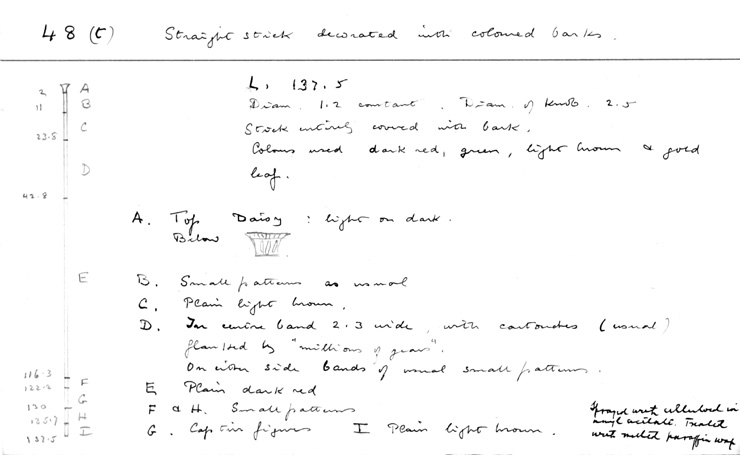 48 (t) Straight stick decorated with coloured barks.
L. 137.5
Diam. 1.2 constant. Diam. of Knob. 2.5
Stick entirely covered with bark.
Colours used dark red, green, light brown & gold
leaf.
2 A
11 B
23.5 C
D
42.8
E
116.3
122.2 F
G
130
135.7 H
137.5 I
A. Top Daisy : light on dark.
Below
B. Small patterns as usual
C. Plain light brown.
D. In centre band 2.3 wide, with cartouches (usual)
flanked by "millions of years".
On either side bands of usual small patterns.
E Plain dark red
F & H. Small patterns
G. Captive figures I Plain light brown.
Sprayed with celluloid in
amyl acetate. Treated
with melted paraffin wax